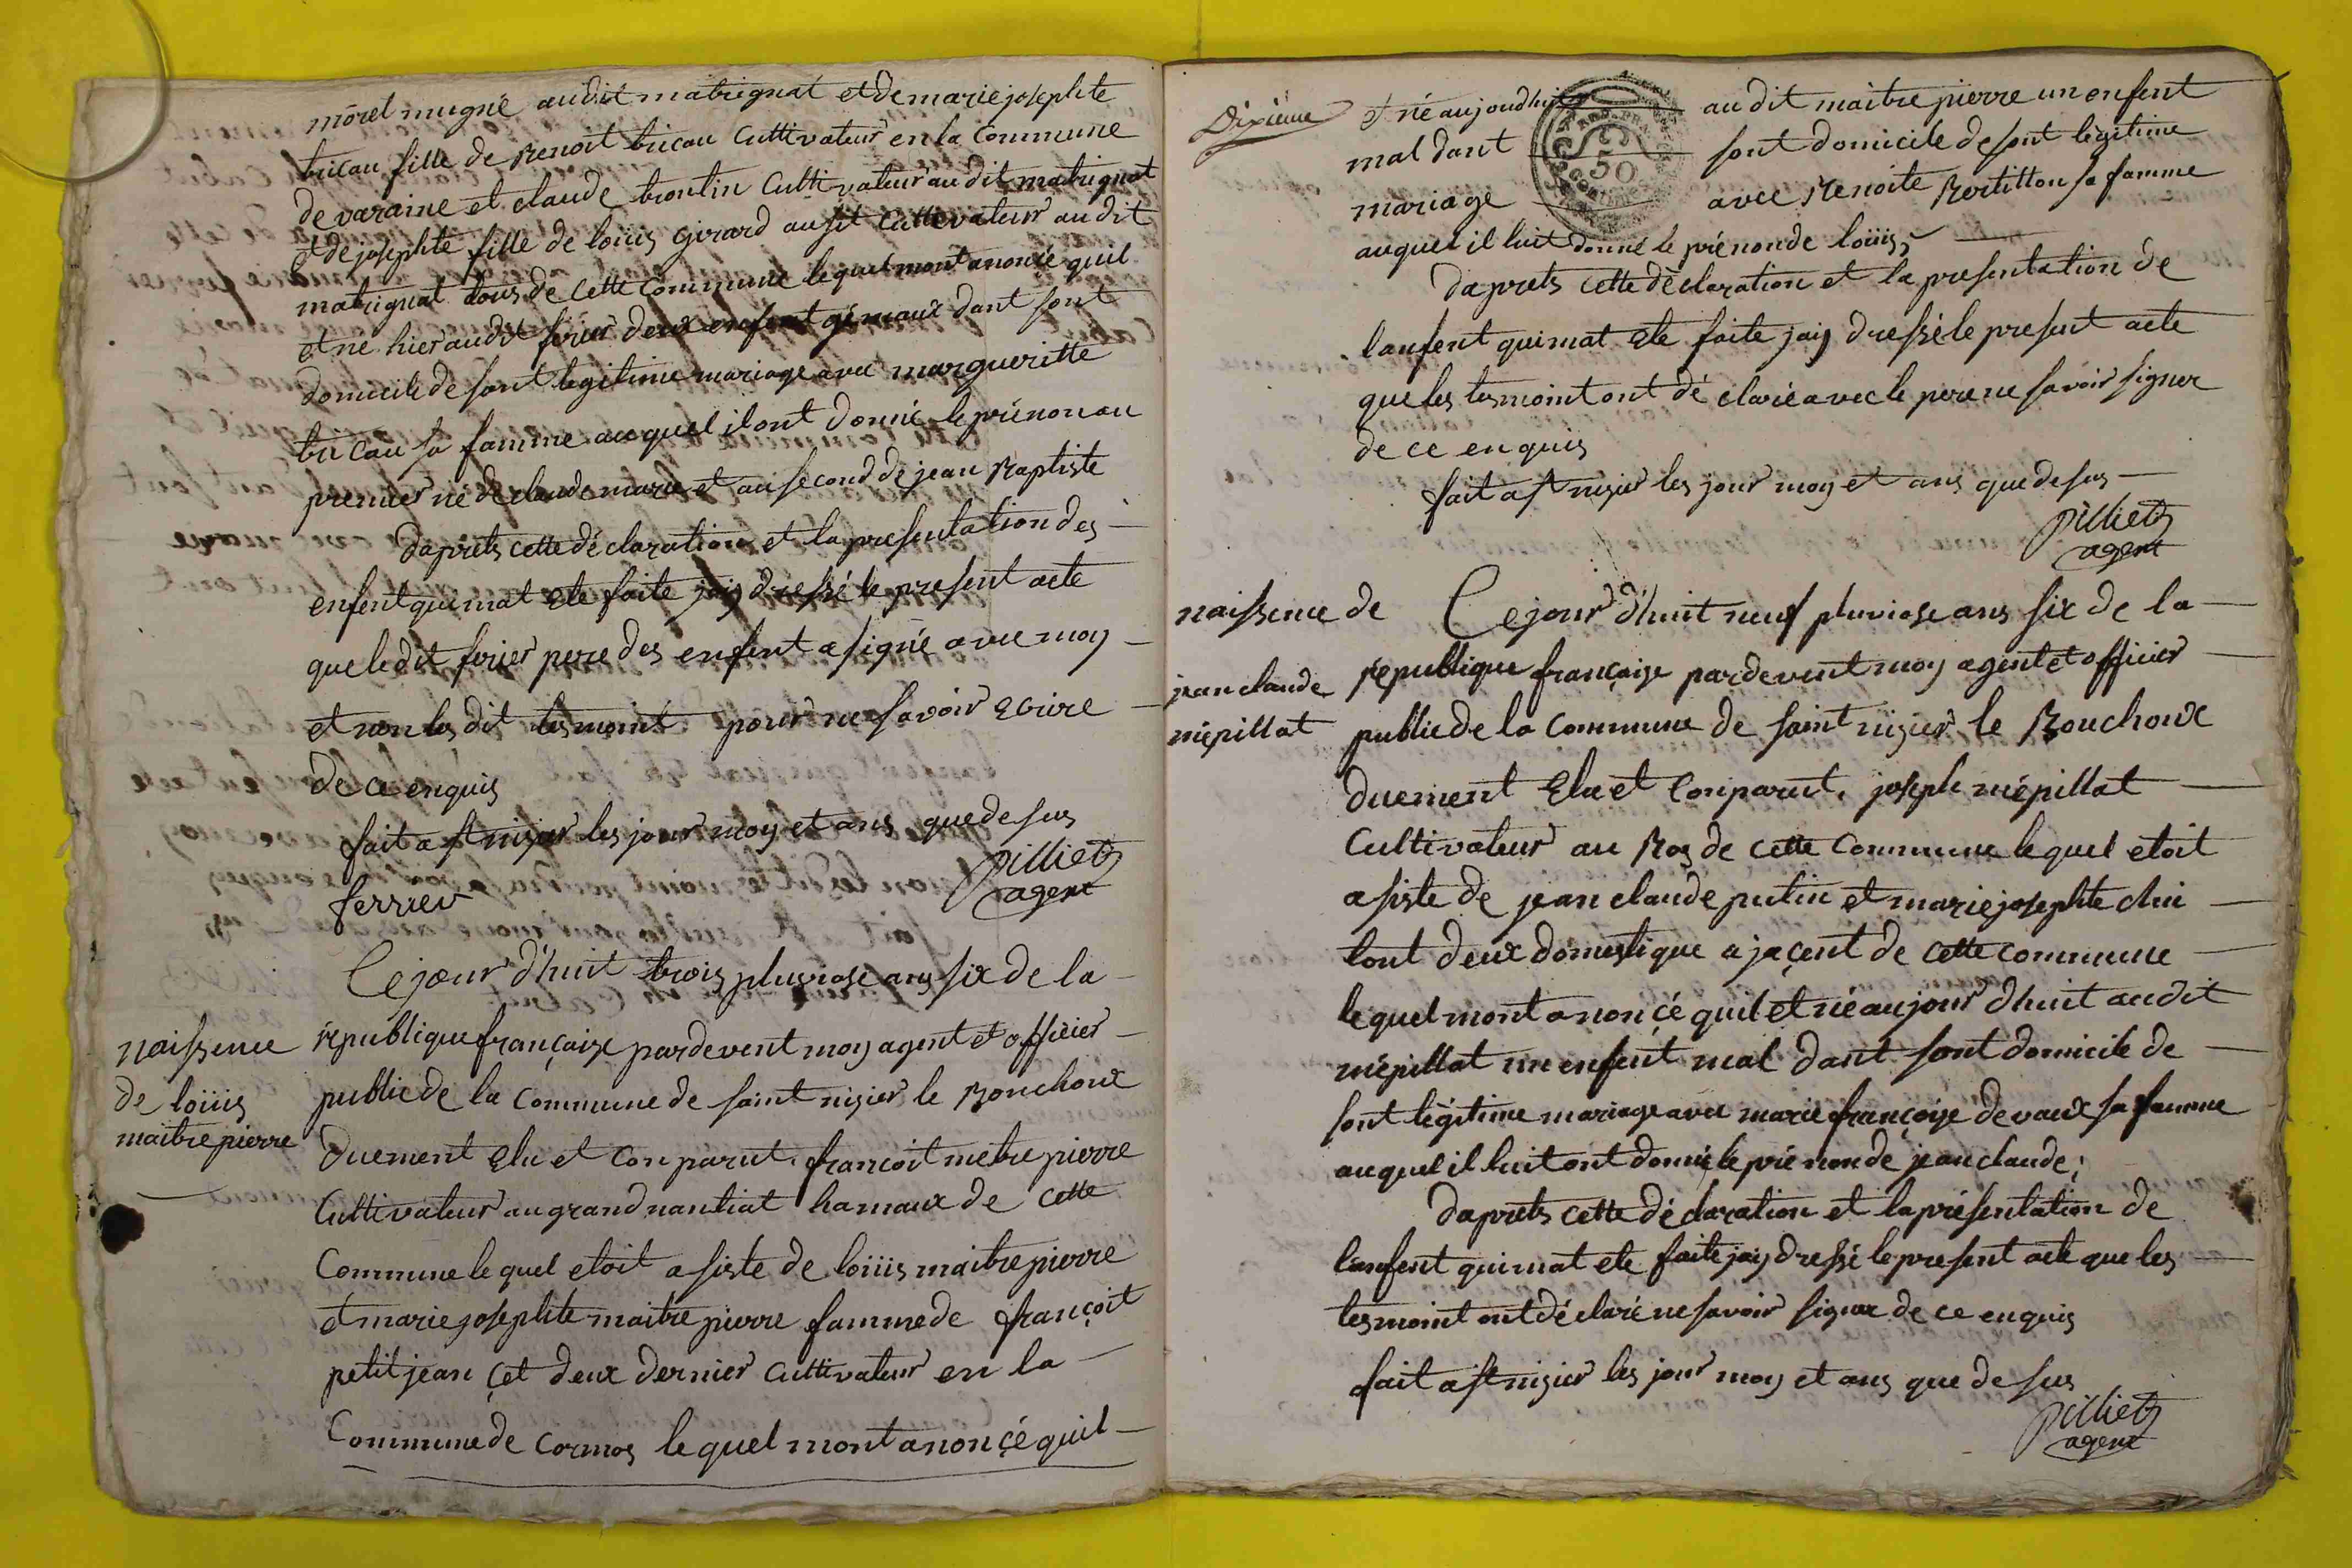 morel mugné audit matrignat et de marie josephte
bucau fille de Benoit bucau Cultivateur en la Commune
de varaine et claude trontin Cultivateur au dit matrignat
et de josephte fille de loüis Girard ausit Cultevateur au dit
matrignat tous de cette Commune lequel mont anoncé quil
et ne hier audit ferier deux enfent gémaux dant sont
domicile de sont legitime mariage avec margueritte
bucau sa famme auquel il ont donné le prénon au
premier né de claude marie et au second de jean Baptiste
daprets cette déclaration et la presentation des
enfent qui mat ete faite jaij dressé le present acte
que le dit ferier pere des enfent a signé avec moy
et non les dit tesmoint pour ne savoir Ecrire
de ce enquis
fait a st nisier les jour moy et ans que desus
ferrier
pilliet
agent
Ce jour d'huit trois pluviose ans six de la
naissence
république françaize pardevent moy agent et officier
de loüis
public de la Commune de saint nizier le Bouchoux
maitre pierre
duement Elu et Conparut françoit metre pierre
Cultivateur au grand nantiat hamaux de cette
Commune le quel etoit a siste de loüis maitre pierre
et marie josephte maitre pierre famme de françoit
petit jean Cet deux dernier Cultivateur en la
Commune de Cormos le quel mont anoncé quil
Dixieme
et né aujoudhuit au dit maitre pierre un enfent
mal dant sont domicile de sont legitime
50
mariage avec Benoite Bertillon sa famme
auquel il luit donné le prénon de loüis
daprets cette déclaration et la presentation de
lanfent qui mat ete faite jaij dressé le present acte
que les tesmoint ont déclaré avec le pere ne savoir signer
de ce enquis
fait a st nisier les jour moy et ans que desus
pilliet
agent
naissence de
Ce jour d'huit neuf pluviose ans six de la
jean claude
république françaize pardevent moy agent et officier
mépillat
public de la Commune de saint nizier le Bouchoux
duement Elu et Conparut, joseph mépillat
Cultivateur au Bos de cette Commune lequel etoit
a siste de jean claude putin et marie josephte
tout deux domestique a jaçent de cette commune
le quel mont anoncé quil et né aujour d'huit au dit
mépillat un enfent mal dant sont domicile de
sont légitime mariage avec marie françoise devaux sa famme
auquel il luit ont donné le pré non de jean claude;
daprets cette déclaration et la présentation de
lanfent qui mat ete faite jaij dressé le present acte que les
tesmoint ont déclaré ne savoir signer de ce enquis
fait a st nisier les jour moy et ans que de sus
pilliet
agent